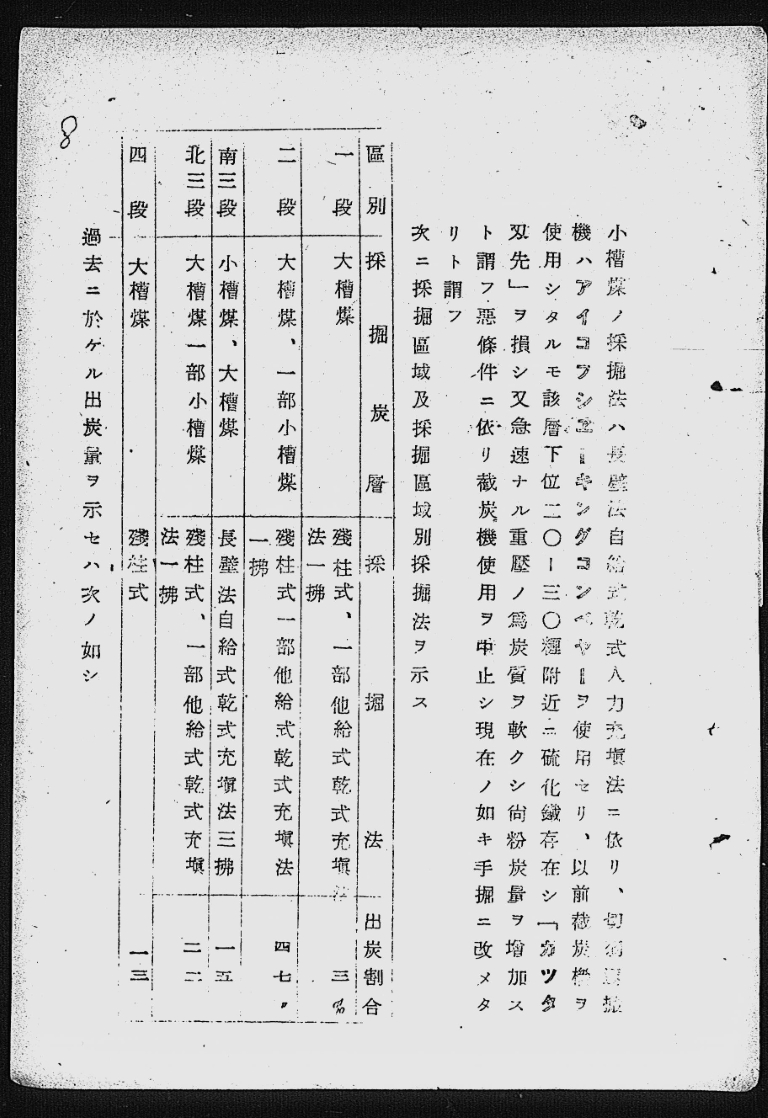 小槽煤ノ採掘法ハ長壁法自給式乾式人力充塡法ニ依リ、切羽運搬
機ハアイコフシエーキングコンベヤーヲ使用セリ、以前截炭機ヲ
使用シタルモ該層下位二〇ー三〇糎附近ニ硫化鐵存在シ「カツタ
双先」ヲ損シ又急速ナル重壓ノ爲炭質ヲ軟クシ尙粉炭量ヲ增加ス
ト謂フ惡條件ニ依リ截炭機使用ヲ中止シ現在ノ如キ手掘ニ改メタ
リト謂フ
次ニ採掘區域及採掘區域別採掘法ヲ示ス
區別 採掘炭層 採掘法 出炭割合
一段 大槽煤 殘柱式、一部他給式乾式充塡法一拂 三%
二段 大槽煤、一部小槽煤 殘柱式一部他給式乾式充塡法一拂 四七〃
南三段 小槽煤、大槽煤 長壁法自給式乾式充塡法三拂 一五
北三段 大槽煤一部小槽煤 殘柱式、一部他給式乾式充塡法一拂 二二
四段 大槽煤 殘柱式 一三
過去ニ於ケル出炭量ヲ示セハ次ノ如シ
8